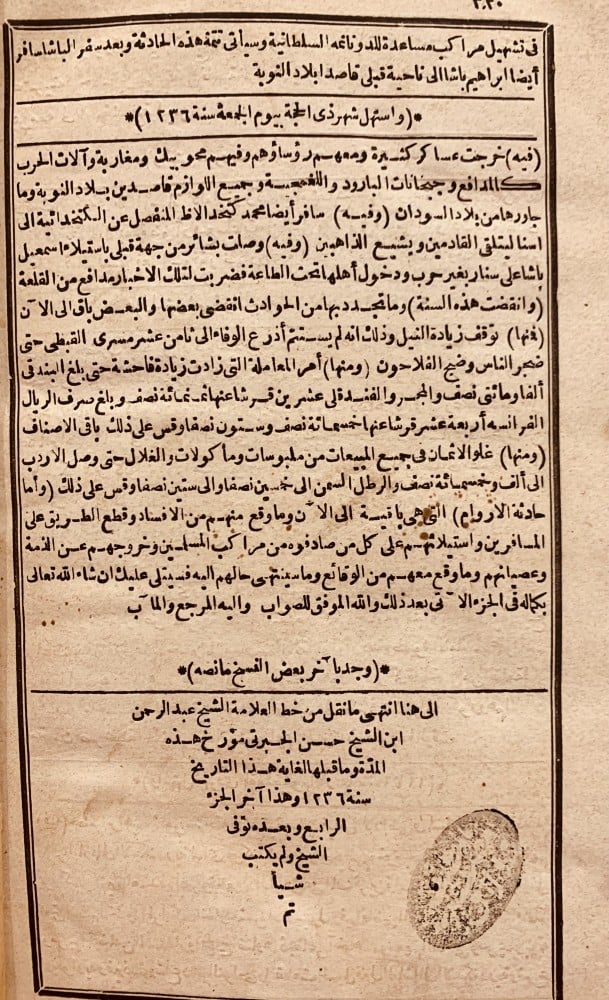 ٣٢٠
فى تشهيل مراكب مساعدة للدونانمه السلطانية وسيأتى تتمة هذه الحادثة وبعد سفر الباشا سافر
أيضا ابراهيم باشا الى ناحية قبلى قاصدا بلاد النوبة
*(واستهل شهر ذى الحجة بيوم الجمعة سنة ١٢٣٦)*
(فيه) خرجت عساكر كثيرة ومعهم رؤساؤهم وفيهم محوبيك ومغاربة وآلات الحرب
كالمدافع وجبخانات البارود واللغمجية وجميع اللوازم قاصدين بلاد النوبة وما
جاورها من بلاد السودان (وفيه) سافر أيضا محمد كتخدا لاظ المنفصل عن الكتخدائية الى
اسنا ليتلقى القادمين ويشيع الذاهبين (وفيه) وصلت بشائر من جهة قبلى باستيلاء اسمعيل
باشا على سنار بغير حرب ودخول أهلها تحت الطاعة فضربت لتلك الاخبار مدافع من القلعة
(وانقضت هذه السنة) وما تجدد بها من الحوادث انقضى بعضها والبعض باق الى الآن
(فمنها) توقف زيادة النيل وذلك انه لم يستتم أذرع الوفاء الى ثامن عشر مسرى القبطى حتى
ضجر الناس وضج الفلاحون (ومنها) أمر المعاملة التى زادت زيادة فاحشة حتى بلغ البندقى
ألفا ومائتى نصف والمجر والفندقلى عشرين قرشا عنها ثمانمائة نصف وبلغ صرف الريال
الفرانسه أربعة عشر قرشا عنها خمسمائة نصف وستون نصفا وقس على ذلك باقى الاصناف
(ومنها) غلو الاثمان فى جميع المبيعات من ملبوسات ومأكولات والغلال حتى وصل الاردب
الى ألف وخمسمائة نصف والرطل السمن الى خمسين نصفا والى ستين نصفا وقس على ذلك (وأما
حادثة الاروام) التى هى باقية الى الآن وما وقع منهم من الافساد وقطع الطريق على
المسافرين واستيلائهم على كل من صادفوه من مراكب المسلمين وخروجهم عن الذمة
وعصيانهم وما وقع معهم من الوقائع وما سينتهى حالهم اليه فسيتلى عليك ان شاء الله تعالى
بكماله فى الجزء الآتى بعد ذلك والله الموفق للصواب واليه المرجع والمآب
*(وجد بآخر بعض النسخ ما نصه)*
الى هنا انتهى ما نقل من خط العلامة الشيخ عبد الرحمن
ابن الشيخ حسن الجبرتى مؤرخ هذه
المدة وما قبلها لغاية هذا التاريخ
سنة ١٢٣٦ وهذا آخر الجزء
الرابع وبعده توفى
الشيخ ولم يكتب
شيأ
تم